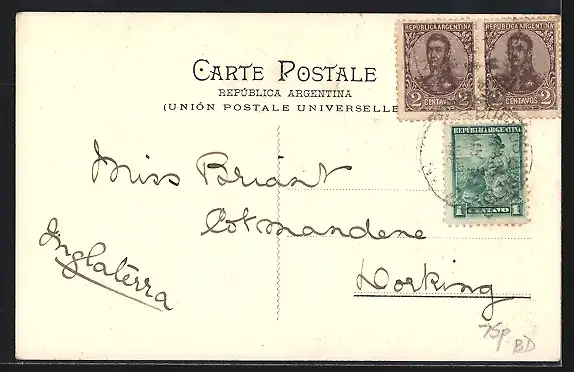 REPÚBLICA ARGENTINA
2 CENTAVOS 2
REPÚBLICA ARGENTINA
2 CENTAVOS 2
CARTE POSTALE
REPÚBLICA ARGENTINA
(UNIÓN POSTALE UNIVERSELLE
REPUBLICA ARGENTINA
1 CENTAVO 1
Miss Briant
Cotmandene
Dorking
Inglaterra
75p
BD